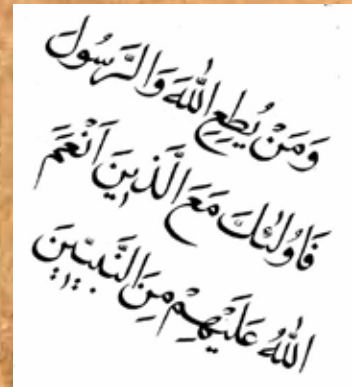 وَمَنْ يُطِعِ اللّٰهَ وَالرَّسُولَ
فَاُولٰئِكَ مَعَ الَّذِينَ اَنْعَمَ
اللّٰهُ عَلَيْهِمْ مِنَ النَّبِيّينَ